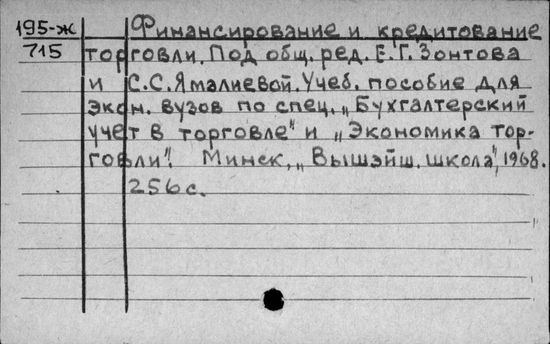 195-ж Финансирование и кредитование
715 торговли. Под общ. ред. Е.Г. Зонтова
и С.С. Ямалиевой. Учеб. пособие для
экон. вузов по спец. „Бухгалтерский
учет в торговле" и „Экономика тор-
говли". Минск, „Вышэйш. школа", 1968.
256 с.